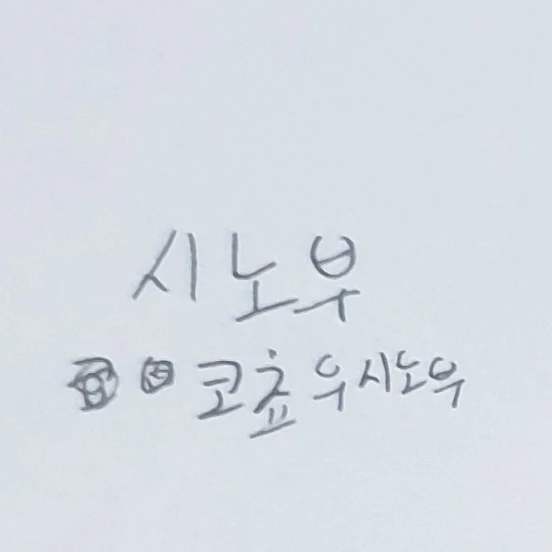 시노부
코쵸우시노부